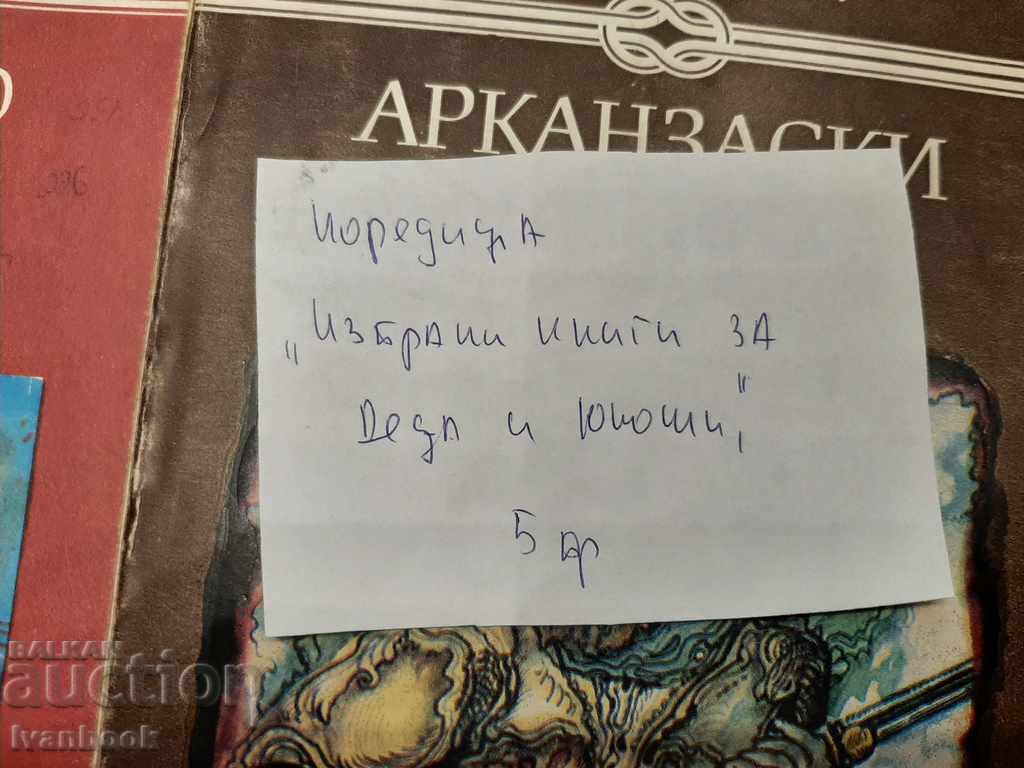 АРКАНЗАСКИ
Поредица
„Избрани книги за
Деца и Юноши"
5 бр
BALKAN
auction
Ivanbook